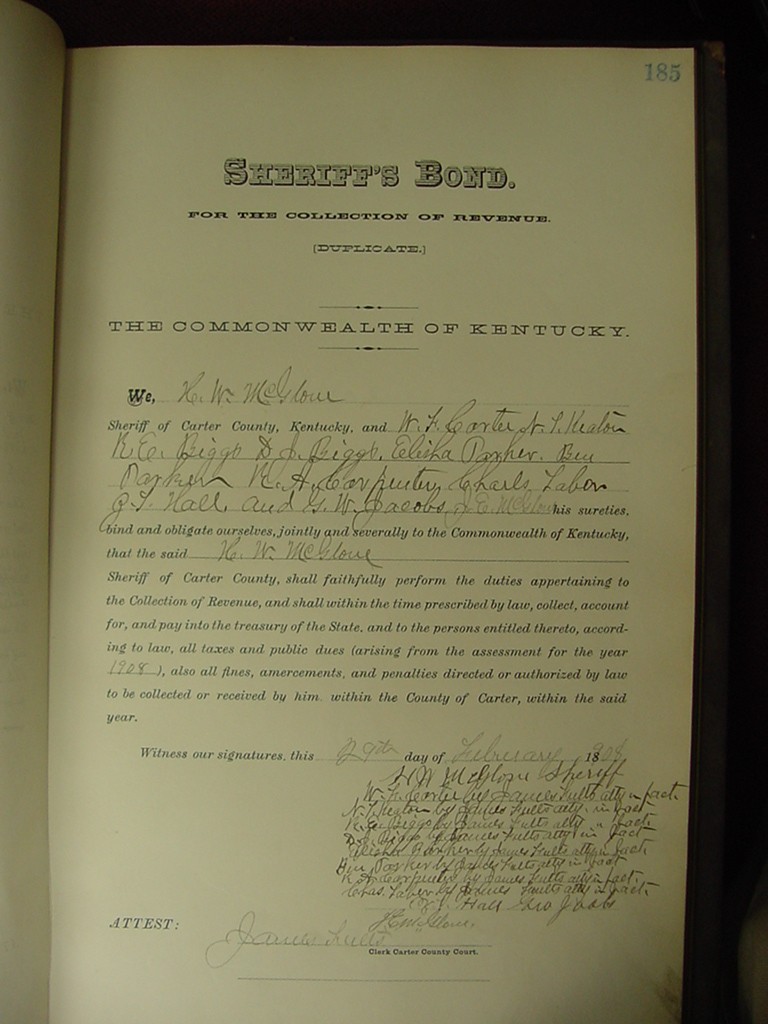 185
SHERIFF'S BOND.
FOR THE COLLECTION OF REVENUE.
[DUPLICATE.]
THE COMMONWEALTH OF KENTUCKY.
We, H. W. McGlone
Sheriff of Carter County, Kentucky, and W. F. Carter N. T. Keaton
R. E. Biggs D. J. Biggs, Elisha Parker. Ben
Parker R. A. Carpenter, Charls Tabor
J. Hall, and G. W. Jacobs, J. E. McGlone his sureties,
bind and obligate ourselves, jointly and severally to the Commonwealth of Kentucky,
that the said H. W. McGlone
Sheriff of Carter County, shall faithfully perform the duties appertaining to
the Collection of Revenue, and shall within the time prescribed by law, collect, account
for, and pay into the treasury of the State, and to the persons entitled thereto, accord-
ing to law, all taxes and public dues (arising from the assessment for the year
1908), also all fines, amercements, and penalties directed or authorized by law
to be collected or received by him within the County of Carter, within the said
year.
Witness our signatures, this 29th day of February 1908
H W McGlone Sheriff
W. F. Carter by James Fults atty in fact.
N. T. Keaton by James Fults atty. in fact
R. E. Biggs by James Fults atty " fact.
D. J. Biggs by James Fults atty in fact
Elisha Parker by James Fults atty in fact.
Ben Parker by James Fults atty in fact
R. A. Carpenter by James Fults atty in fact.
Chas. Tabor by James Fults atty in fact.
Hall Geo Jacobs
J E McGlone.
ATTEST: James Fults
Clerk Carter County Court.